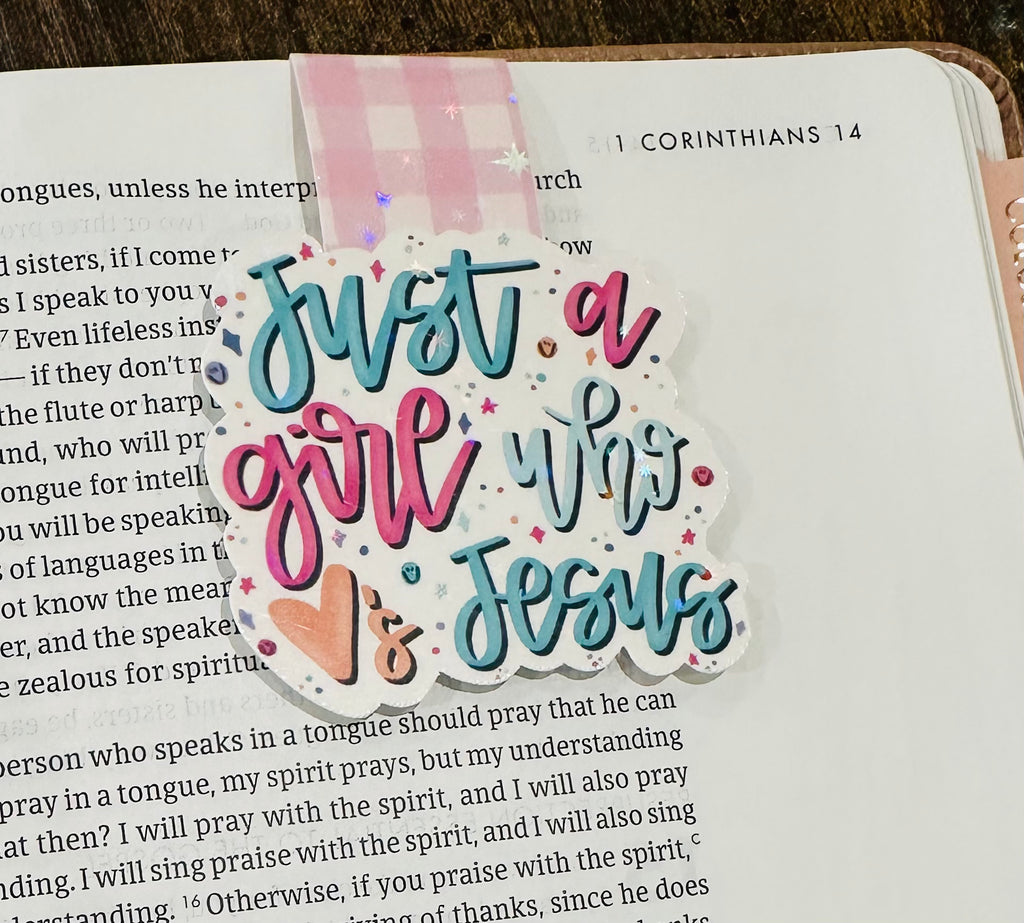 1 CORINTHIANS 14
ongues, unless he interp urch
sisters, if I come ow
s I speak to you
7 Even lifeless ins
— if they don't
the flute or harp
und, who will pr
ongue for intelli
ou will be speaking
s of languages in t
ot know the mean
er, and the speaker
e zealous for spiritu
Just a
girl who
♥'s Jesus
person who speaks in a tongue should pray that he can
pray in a tongue, my spirit prays, but my understanding
at then? I will pray with the spirit, and I will also pray
nding. I will sing praise with the spirit, and I will also sing
derstanding. 16 Otherwise, if you praise with the spirit,c
iving of thanks, since he does